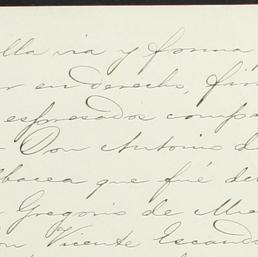 lla via y forma
r en derecho, fir
espresados compa
Don Antonio d
lbacea que fué de
Gregorio de Mu
on Vicente Escand